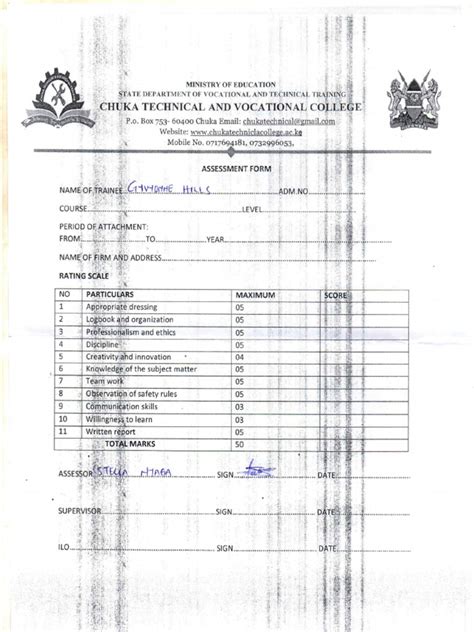 MINISTRY OF EDUCATION
STATE DEPARTMENT OF VOCATIONAL AND TECHNICAL TRAINING
CHUKA TECHNICAL AND VOCATIONAL COLLEGE
P.o. Box 753- 60400 Chuka Email: chukatechnical@gmail.com
Website: www.chukatechniclacollege.ac.ke
Mobile No. 0717694181, 0732996053,
ASSESSMENT FORM
NAME OF TRAINEE HILLS ADM.NO
COURSE LEVEL
PERIOD OF ATTACHMENT:
FROM TO YEAR
NAME OF FIRM AND ADDRESS
RATING SCALE
NO PARTICULARS MAXIMUM SCORE
1 Appropriate dressing 05
2 Logbook and organization 05
3 Professionalism and ethics 05
4 Discipline 05
5 Creativity and innovation 04
6 Knowledge of the subject matter 05
7 Team work 05
8 Observation of safety rules 05
9 Communication skills 03
10 Willingness to learn 03
11 Written report 05
TOTAL MARKS 50
ASSESSOR STELLA NYAGA SIGN DATE
SUPERVISOR SIGN DATE
ILO SIGN DATE